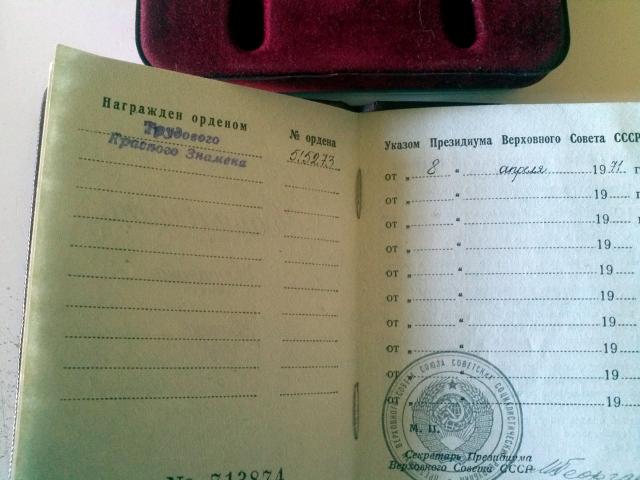 Награжден орденом
Трудового
Красного Знамени
№ ордена
515273
Указом Президиума Верховного Совета СССР
от „ 8 “ апреля 1971 г
от „ “ 19
от „ “ 19
от „ “ 19
от „ “ 19
от „ “ 19
от „ “ 19
от „ “ 19
от „ “ 19
от „ “ 19
М. П.
Секретарь Президиума
Верховного Совета СССР
№ 713874